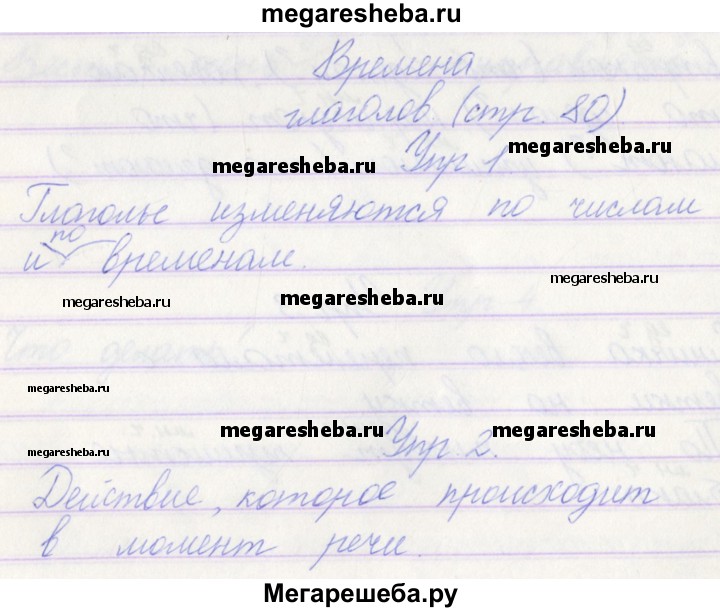 megaresheba.ru
Времена
глаголов (стр. 80)
megaresheba.ru
megaresheba.ru Упр. 1
Глаголы изменяются по числам
и по временам.
megaresheba.ru
megaresheba.ru
megaresheba.ru
megaresheba.ru
megaresheba.ru
megaresheba.ru
megaresheba.ru
Упр. 2.
Действие, которое происходит
в момент речи.
megaresheba.ru
Мегарешеба.ру